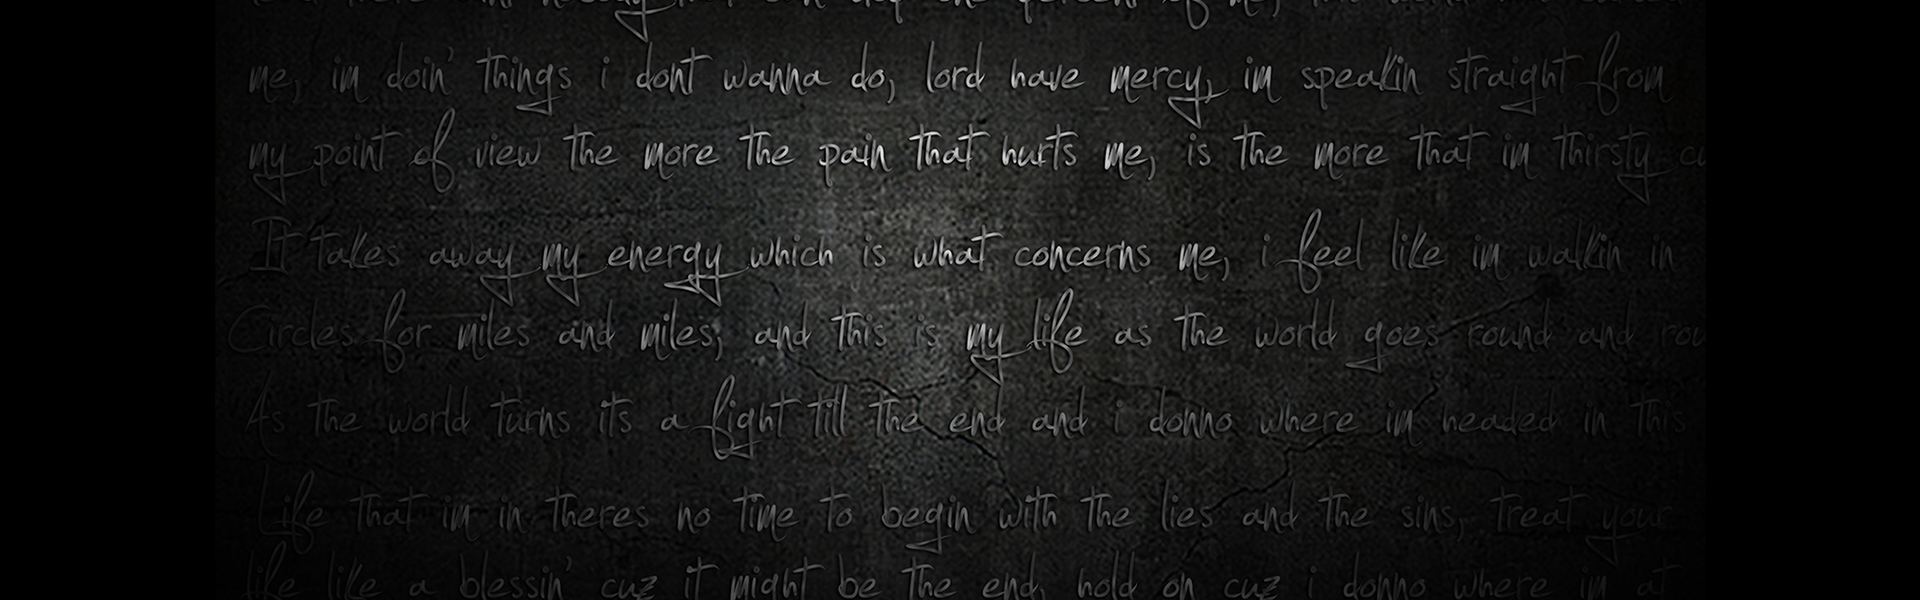 me, im doin' things i dont wanna do, lord have mercy, im speakin straight from
my point of view the more the pain that hurts me, is the more that im thirsty
It takes away my energy which is what concerns me, i feel like im walkin in
Circles for miles and miles, and this is my life as the world goes round and
As the world turns its a fight till the end and i donno where im headed in this
Life that im in theres no time to begin with the lies and the sins, treat your
life like a blessin' cuz it might be the end, hold on cuz i donno where im at